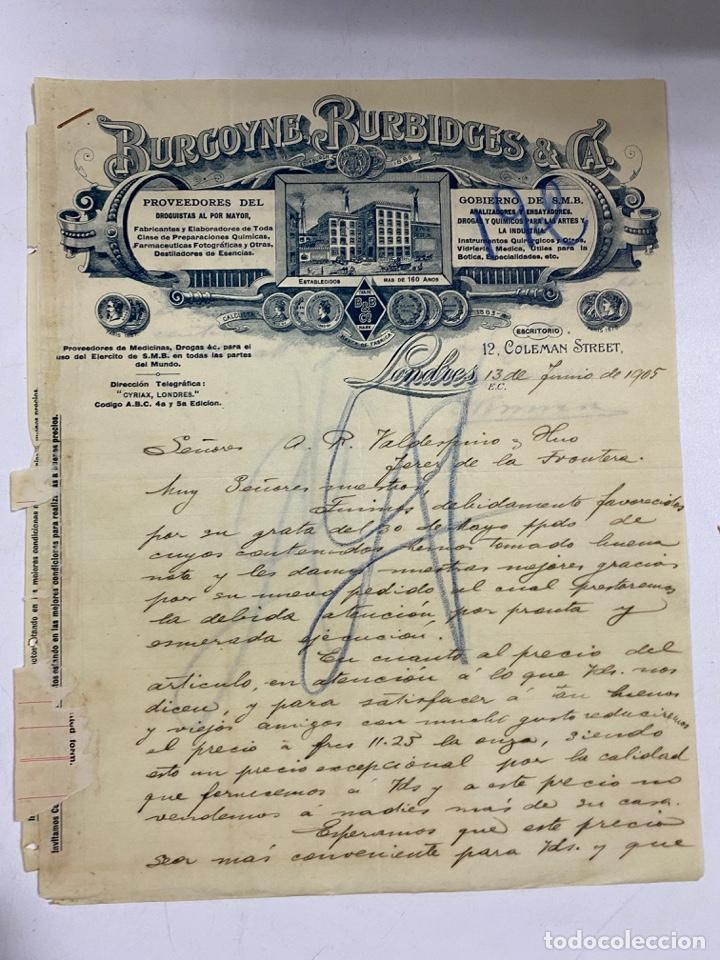 BURGOYNE, BURBIDGES & CA.
PROVEEDORES DEL
DROGUISTAS AL POR MAYOR,
Fabricantes y Elaboradores de Toda
Clase de Preparaciones Quimicas,
Farmaceuticas Fotográficas y Otras,
Destiladores de Esencias.
GOBIERNO DE S.M.B.
ANALIZADORES Y ENSAYADORES.
DROGAS Y QUIMICOS PARA LAS ARTES Y
LA INDUSTRIA.
Instrumentos Quirurgicos y Otros,
Vidrieria Medica, Utiles para la
Botica, Especialidades, etc.
ESTABLECIDOS MAS DE 160 AÑOS
TRADE
B B
MARK
CALCUTTA
MARCA DE FABRICA
Proveedores de Medicinas, Drogas &c. para el
uso del Ejercito de S.M.B. en todas las partes
del Mundo.
Dirección Telegráfica:
"CYRIAX, LONDRES."
Codigo A.B.C. 4a y 5a Edicion.
ESCRITORIO
12, COLEMAN STREET,
Londres 13 de Junio de 1905
E.C.
Señores A. R. Valdespino y Hno
Jerez de la Frontera.
Muy Señores nuestros,
Fuimos debidamente favorecidos
por su grata del 30 de Mayo ppdo de
cuyos contenidos hemos tomado buena
nota y les damos nuestras mejores gracias
por su nuevo pedido al cual prestaremos
la debida atención, por pronta y
esmerada ejecución.
En cuanto al precio del
articulo, en atención á lo que Vds. nos
dicen, y para satisfacer á tan buenos
y viejos amigos con mucho gusto reduciremos
el precio á frcs 11.25 la onza, siendo
esto un precio excepcional por la calidad
que fornecemos á Vds y a este precio no
vendemos á nadies más de su casa.
Esperamos que este precio
ser más conveniente para Vds. y que
todocoleccion
todocoleccion.net